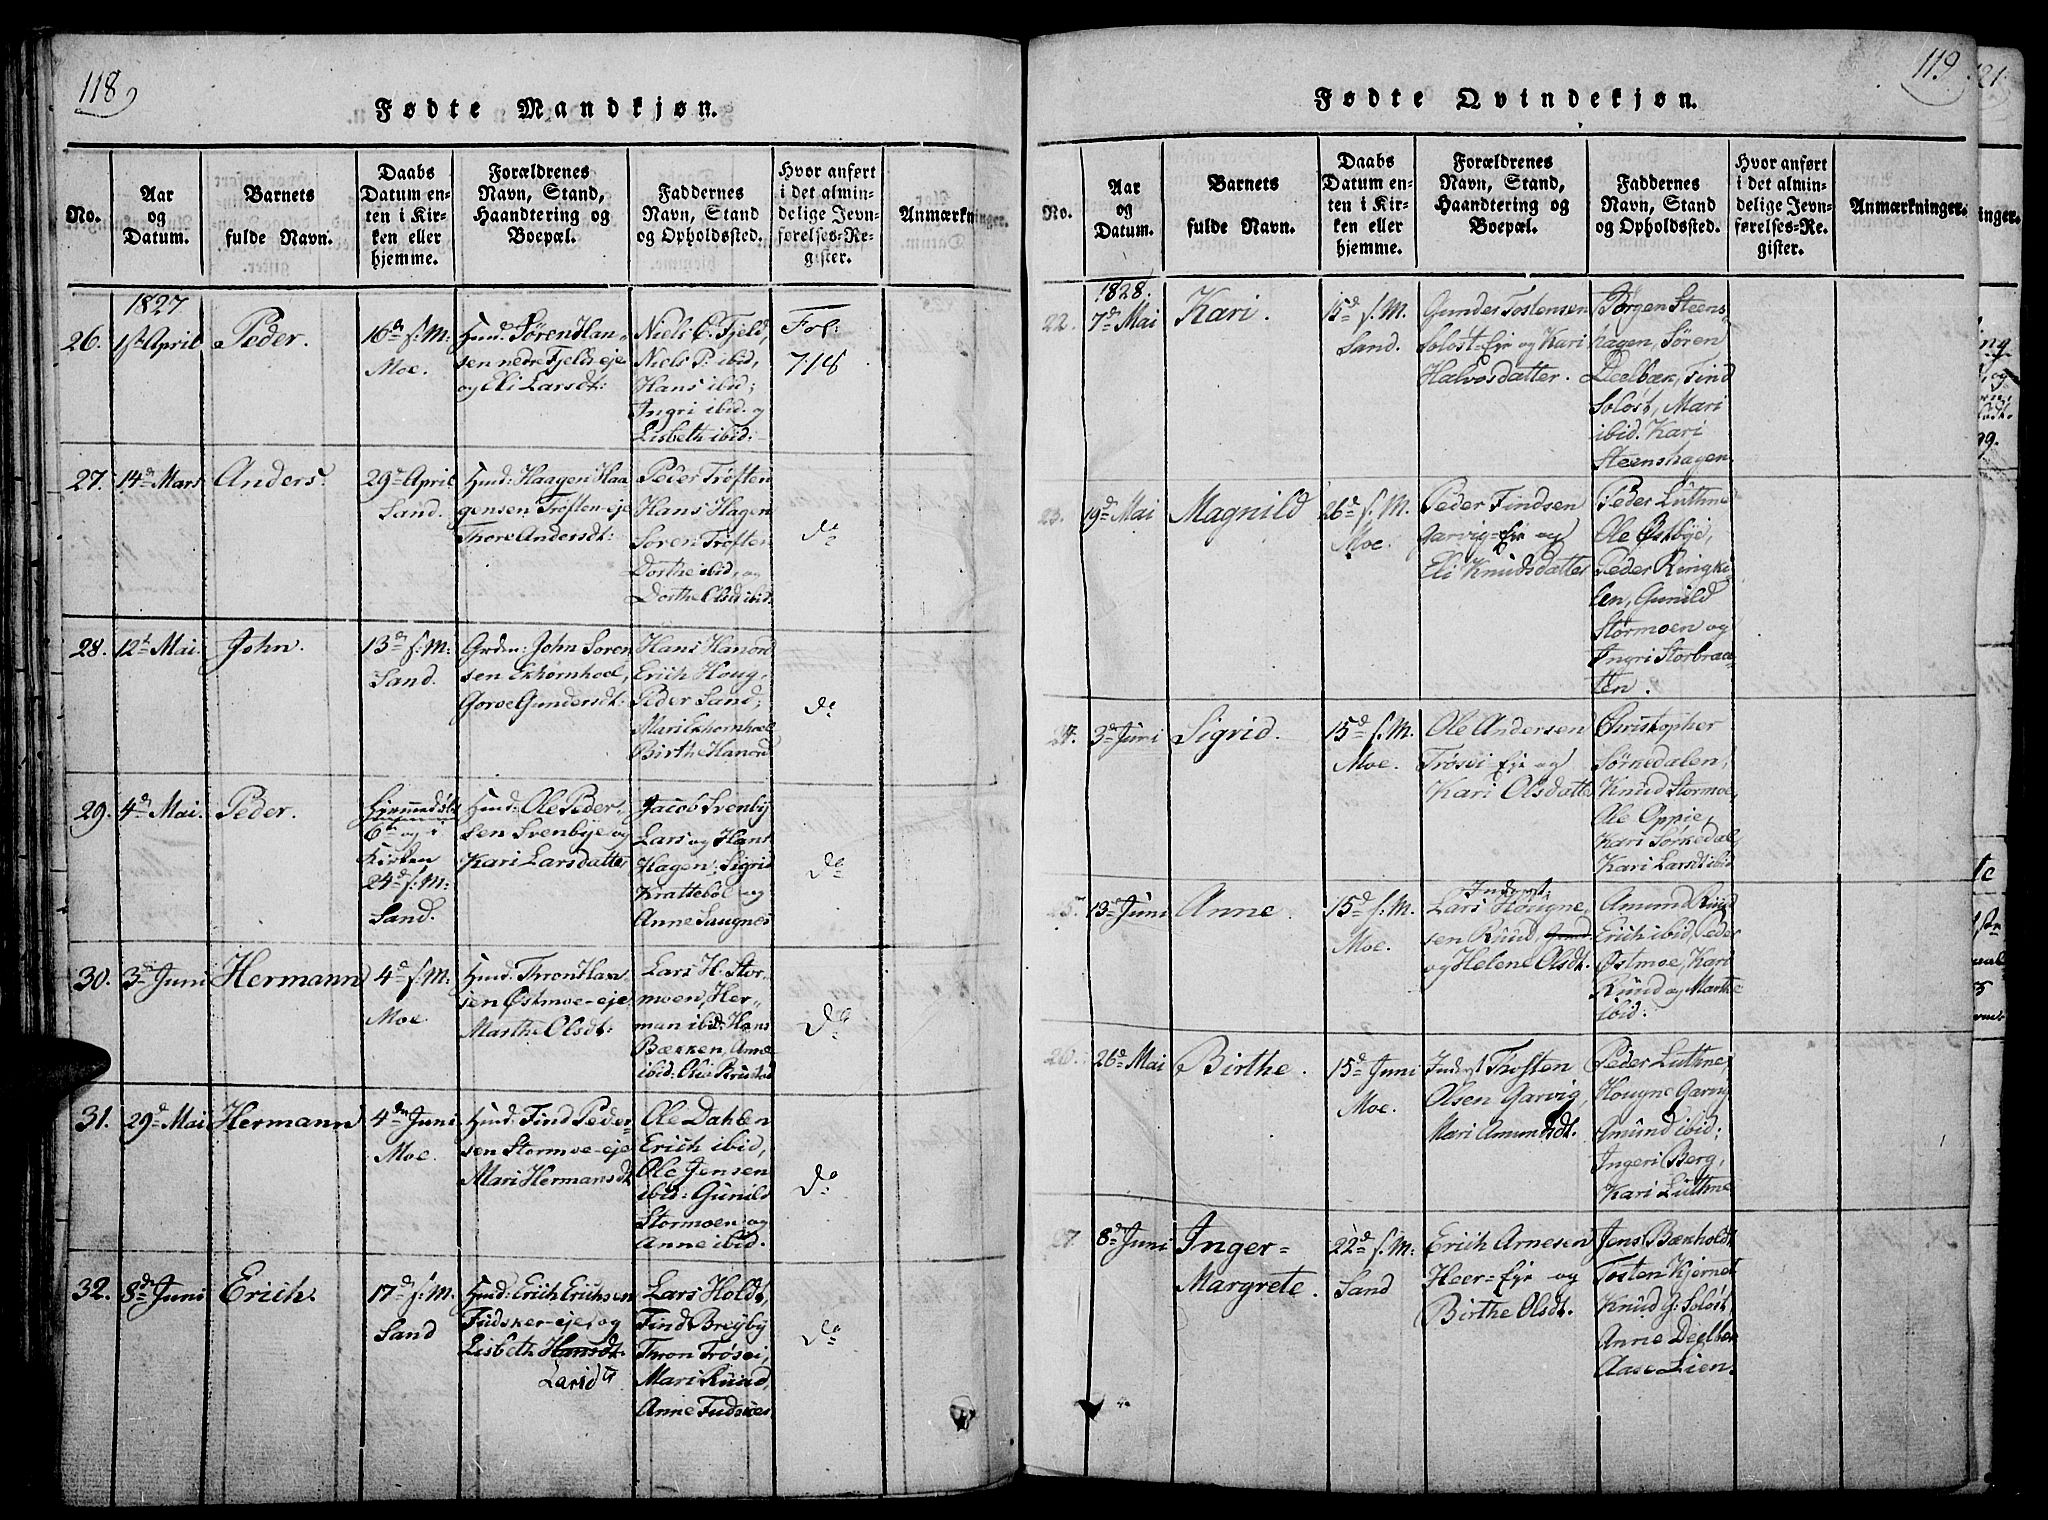 118
Fødte Mandkjøn.
No.
Aar
og
Datum.
Barnets
fulde Navn.
Daabs
Datum en-
ten i Kir-
ken eller
hjemme.
Forældrenes
Navn, Stand,
Haandtering og
Boepæl.
Faddernes
Navn, Stand
og Opholdssted.
Hvor anført
i det almin-
delige Jevn-
førelses-Re-
gister.
Anmærkninger.
1827
26.
1st April
Peder.
16de f: M.
Moe.
Huusd: Søren Han-
sen nedre Fjelds-eje
og Eli Larsdt:
Niels C. Fjeld,
Niels P: ibid,
Hans ibid;
Ingri ibid. og
Lisbeth ibid:
Fol:
718
27.
14de Mars
Anders.
29de April
Sand.
Huusd: Haagen Haa
gensen Trøften-eje
Thore Andersdt:
Peder Trøften
Hans Hagen
Soren Trøften
Dorthe ibid, og
Dorthe Olsd ibid.
do
28.
12te Mai.
John.
13de f: M:
Sand.
Grdm: John Soren
sen Ekhornhoel,
Gorve Gundersdt:
Hans Hanord
Erich Houg,
Peder Sand;
Mari Ekhornhoel
Birthe Hanord
do
29.
4de Mai.
Peder.
Hjemmedøbt
6te og i
Kirken
24de f: M:
Sand.
Huusd: Ole Peder-
sen Svenbye og
Kari Larsdatter
Jacob Svenby
Lars og Hans
Hagen; Sigrid
Krattebøl og
Anne Saugnes
do
30.
3de Juni
Hermann
4de f: M.
Moe.
Huusd: Thron Han
sen Østmoe-eje
Marthe Olsdt:
Lars H. Stor-
moen, Her-
man ibd: Hans
Bækken, Anne
ibid: Olia Krustad
do
31.
29de Mai
Hermann
4de Juni
Moe.
Huusd: Find Peder-
sen Stormoe-eje
Mari Hermansdt
Ole Dahlen
Erich ibid,
Ole Jensen
ibid: Gunild
Stormoen og
Anne ibid.
do
32.
8de Juni
Erich.
17de f: M.
Sand
Huusd: Erich Erichsen
Fudsker-eje, og
Lisbeth Hansdt.
Larsdtr
Lars Holdt,
Find Breyby
Thron Trøsei,
Mari Ruud,
Anne Fudskes
do
119.
Fødte Qvindekjøn.
No.
Aar
og
Datum.
Barnets
fulde Navn.
Daabs
Datum en-
ten i Kir-
ken eller
hjemme.
Forældrenes
Navn, Stand,
Haandtering og
Boepæl.
Faddernes
Navn, Stand
og Opholdssted.
Hvor anført
i det almin-
delige Jevn-
førelses-Re-
gister.
Anmærkninger.
1828.
22.
7de Mai
Kari.
15de f. M.
Sand.
Gunder Tostensen
Soløst-Eje og Kari
Halvosdatter.
Børgen Steens-
hagen, Søren
Deelbæk, Find
Soløst, Mari
ibid. Kari
Steenshagen.
23.
19de Mai
Magnild
26de f. M.
Moe.
Peder Findsen
Garvig-Eje og
Eli Knudsdatter
Peder Luthne
Ole Østbye,
Peder Ringki-
len, Gunild
Stormoen og
Ingri Storbraa-
ten.
24.
3de Juni
Sigrid.
15de f. M.
Moe.
Ole Andersen
Trøsei-Eje og
Kari Olsdatter
Christopher
Sørkedalen,
Knud Stormoe,
Ole Oppie,
Kari Sørkedal,
Kari Larsdt ibid
25.
13de Juni
Anne.
15de f. M.
Moe.
Inderst:
Lars Hougne,
sen Ruud,
og Helene Olsdt.
Amund Ruud
Erich ibid, Peder
Østmoe, Kari
Ruud og Marthe
ibid:
26.
26de Mai
Birthe.
15de Juni
Moe.
Inderst Trøften
Olsen Garvig,
Mari Amundsdt.
Peder Luthne,
Hougne Garvig
Amund ibid;
Ingeri Berg,
Kari Luthne
27
8de Juni
Inger-
Margrete.
22de f. M:
Sand
Erich Arnesen
Heer-Eje og
Birthe Olsdt.
Jens Bækholdt
Tosten Kjernet
Knud G: Soløst,
Anne Deelbæk
Aase Lien.
121